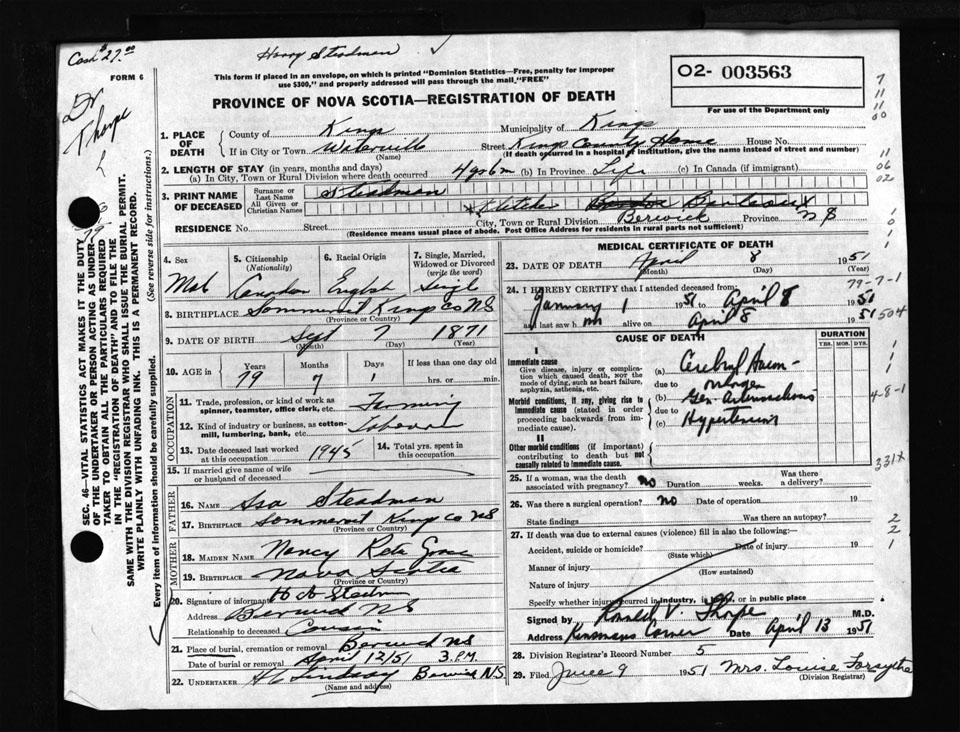 Cash $27.00
Harry Steadman ✓
FORM 6
This form if placed in an envelope, on which is printed "Dominion Statistics—Free, penalty for improper
use $300," and properly addressed will pass through the mail "FREE"
02- 003563
For use of the Department only
PROVINCE OF NOVA SCOTIA—REGISTRATION OF DEATH
Dr
Thorpe
SEC. 46—VITAL STATISTICS ACT MAKES IT THE DUTY
OF THE UNDERTAKER OR PERSON ACTING AS UNDER-
TAKER TO OBTAIN ALL THE PARTICULARS REQUIRED
IN THE "REGISTRATION OF DEATH" AND TO FILE THE
SAME WITH THE DIVISION REGISTRAR WHO SHALL ISSUE THE BURIAL PERMIT.
WRITE PLAINLY WITH UNFADING INK. THIS IS A PERMANENT RECORD.
Every item of information should be carefully supplied. (See reverse side for instructions.)
1. PLACE OF DEATH
County of Kings Municipality of Kings
If in City or Town Waterville Street Kings County Home House No.
(Name) (If death occurred in a hospital or institution, give the name instead of street and number)
2. LENGTH OF STAY (in years, months and days)
(a) In City, Town or Rural Division where death occurred 4 yrs 6 m (b) In Province Life (c) In Canada (if immigrant)
3. PRINT NAME OF DECEASED
Surname or Last Name Steadman
All Given or Christian Names
RESIDENCE No. Street City, Town or Rural Division Berwick Province N S
(Residence means usual place of abode. Post Office Address for residents in rural parts not sufficient)
4. Sex
Male
5. Citizenship (Nationality)
Canadian
6. Racial Origin
English
7. Single, Married, Widowed or Divorced (write the word)
Single
8. BIRTHPLACE Sommerset Kings Co NS
(Province or Country)
9. DATE OF BIRTH Sept 7 1871
(Month) (Day) (Year)
10. AGE in
Years Months Days If less than one day old
79 7 1 hrs. or min.
OCCUPATION
11. Trade, profession, or kind of work as spinner, teamster, office clerk, etc. Farming
12. Kind of industry or business, as cotton-mill, lumbering, bank, etc. Laborer
13. Date deceased last worked at this occupation 1945
14. Total yrs. spent in this occupation
15. If married give name of wife or husband of deceased
FATHER
16. Name Asa Steadman
17. Birthplace Sommerset Kings Co NS
(Province or Country)
MOTHER
18. MAIDEN NAME Nancy
19. BIRTHPLACE Nova Scotia
(Province or Country)
20. Signature of informant
Address Berwick NS
Relationship to deceased Cousin
21. Place of burial, cremation or removal Berwick NS
Date of burial or removal April 12/51 3 P.M.
22. UNDERTAKER Lindsay Berwick N.S.
(Name and address)
MEDICAL CERTIFICATE OF DEATH
23. DATE OF DEATH April 8 1951
(Month) (Day) (Year)
79-7-1
24. I HEREBY CERTIFY that I attended deceased from:
January 1 1951 to April 8 1951
and last saw h im alive on April 8 1951
504
CAUSE OF DEATH
DURATION
YRS. MOS. DYS.
I
Immediate cause
Give disease, injury or complication which caused death, not the mode of dying, such as heart failure, asphyxia, asthenia, etc.
(a) Cerebral Haem-
due to orrhage
Morbid conditions, if any, giving rise to immediate cause (stated in order proceeding backwards from immediate cause).
(b) Gen. Arteriosclerosis
due to
(c) Hypertension
4-8-1
II
Other morbid conditions (if important) contributing to death but not causally related to immediate cause.
331x
25. If a woman, was the death associated with pregnancy? no Duration weeks. Was there a delivery?
26. Was there a surgical operation? no Date of operation 19
State findings Was there an autopsy?
27. If death was due to external causes (violence) fill in also the following:
Accident, suicide or homicide? Date of injury 19
(State which)
Manner of injury
(How sustained)
Nature of injury
Specify whether injury occurred in industry, in home, or in public place
Signed by Ronald V. Thorpe M.D.
Address Kinsmans Corner Date April 13 1951
28. Division Registrar's Record Number 5
29. Filed June 9 1951 Mrs. Louise Forsythe
(Division Registrar)